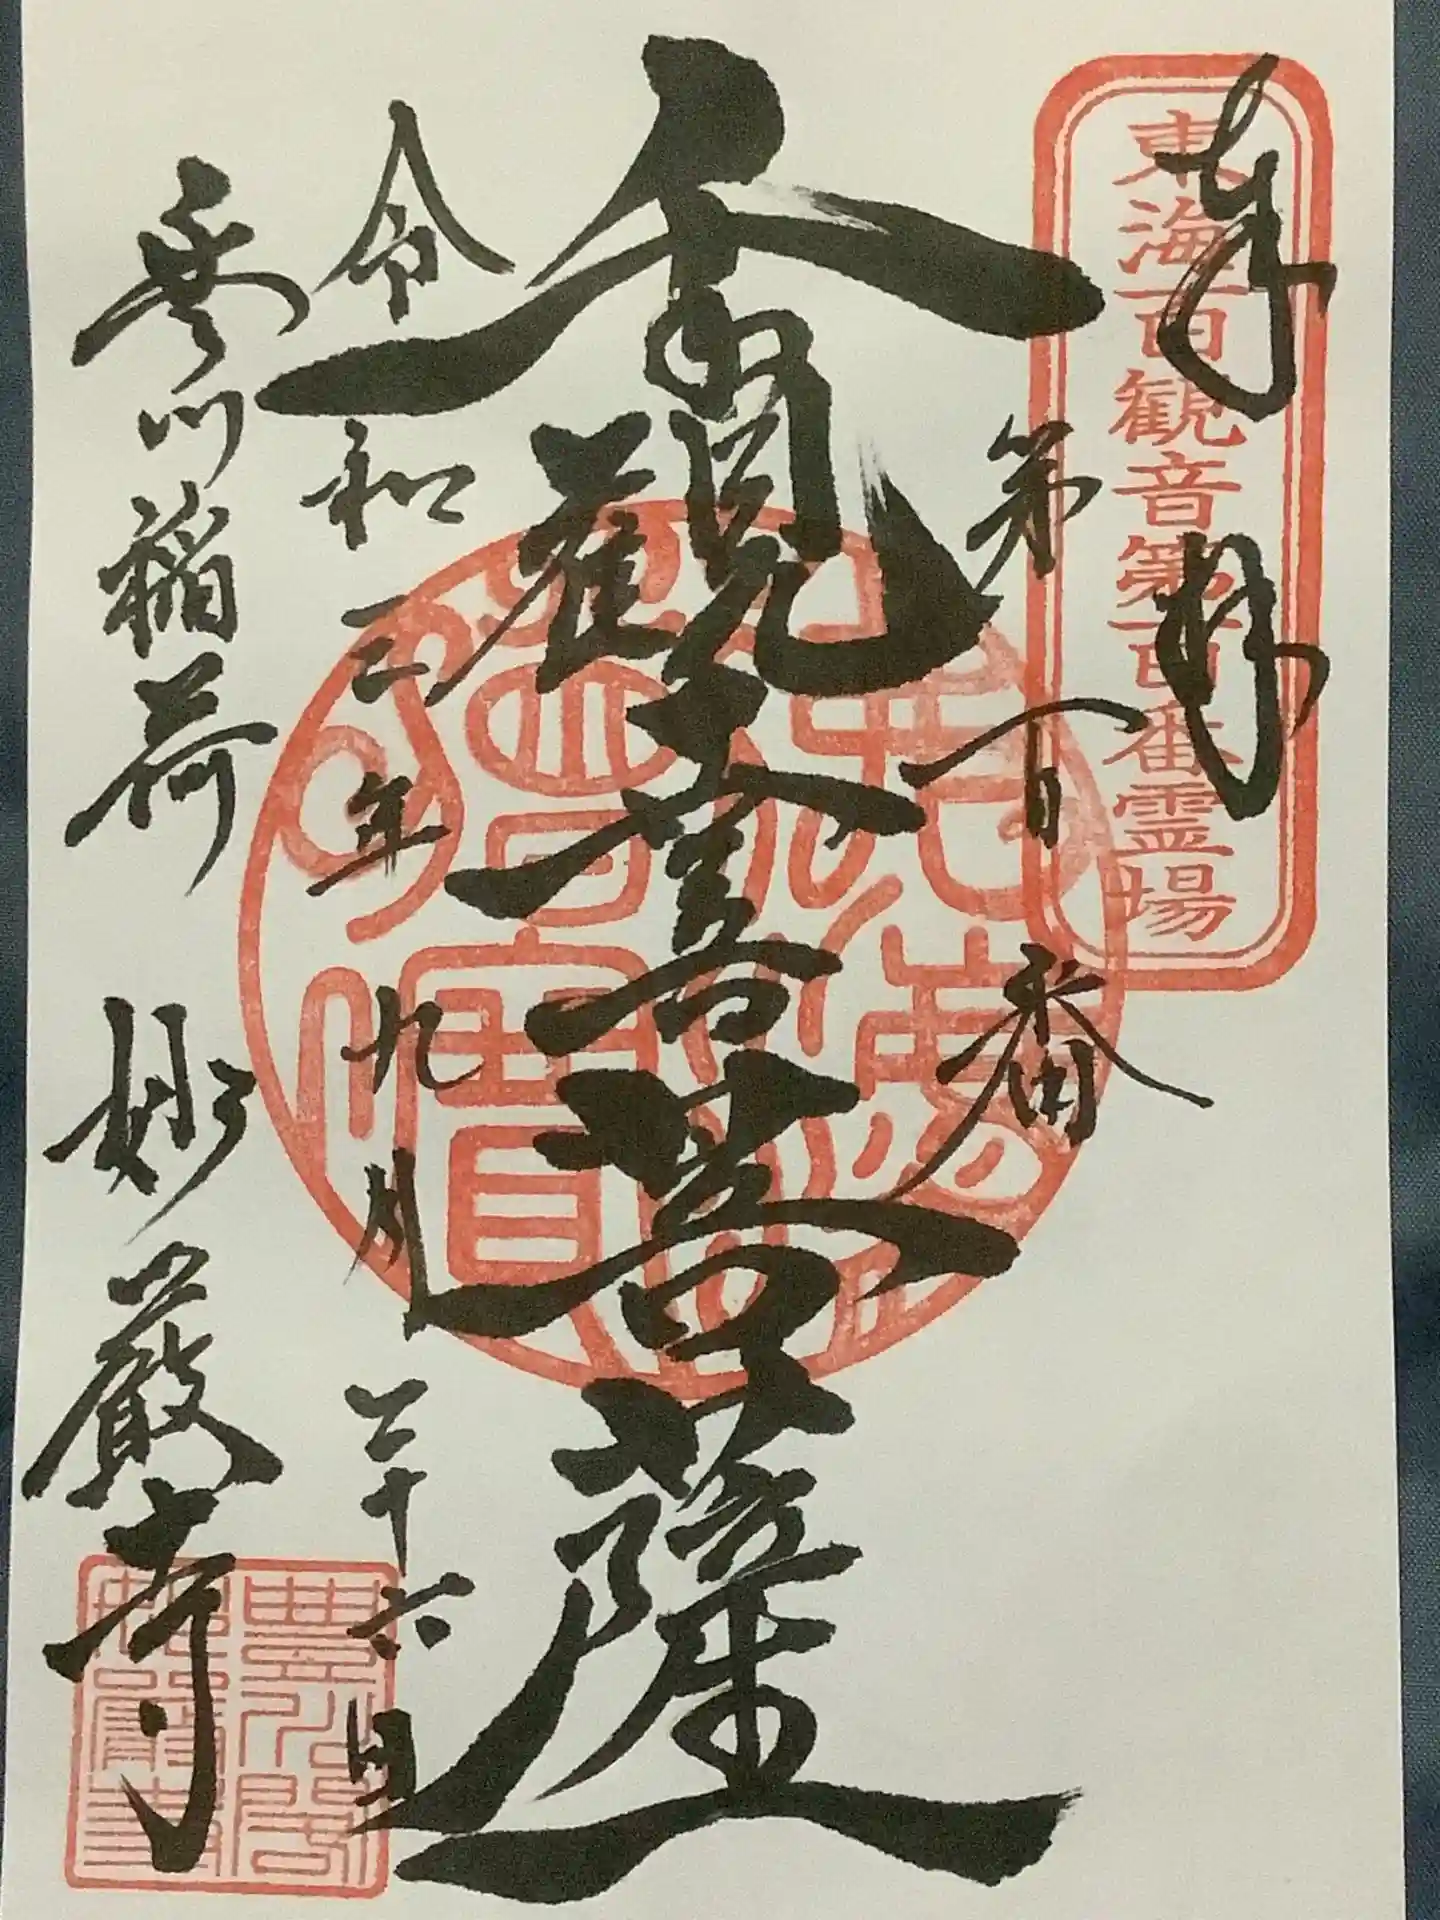 奉拝
東海百観音第百番霊場
第百番
千手觀世音菩薩
令和三年九月二十六日
豊川稲荷 妙厳寺